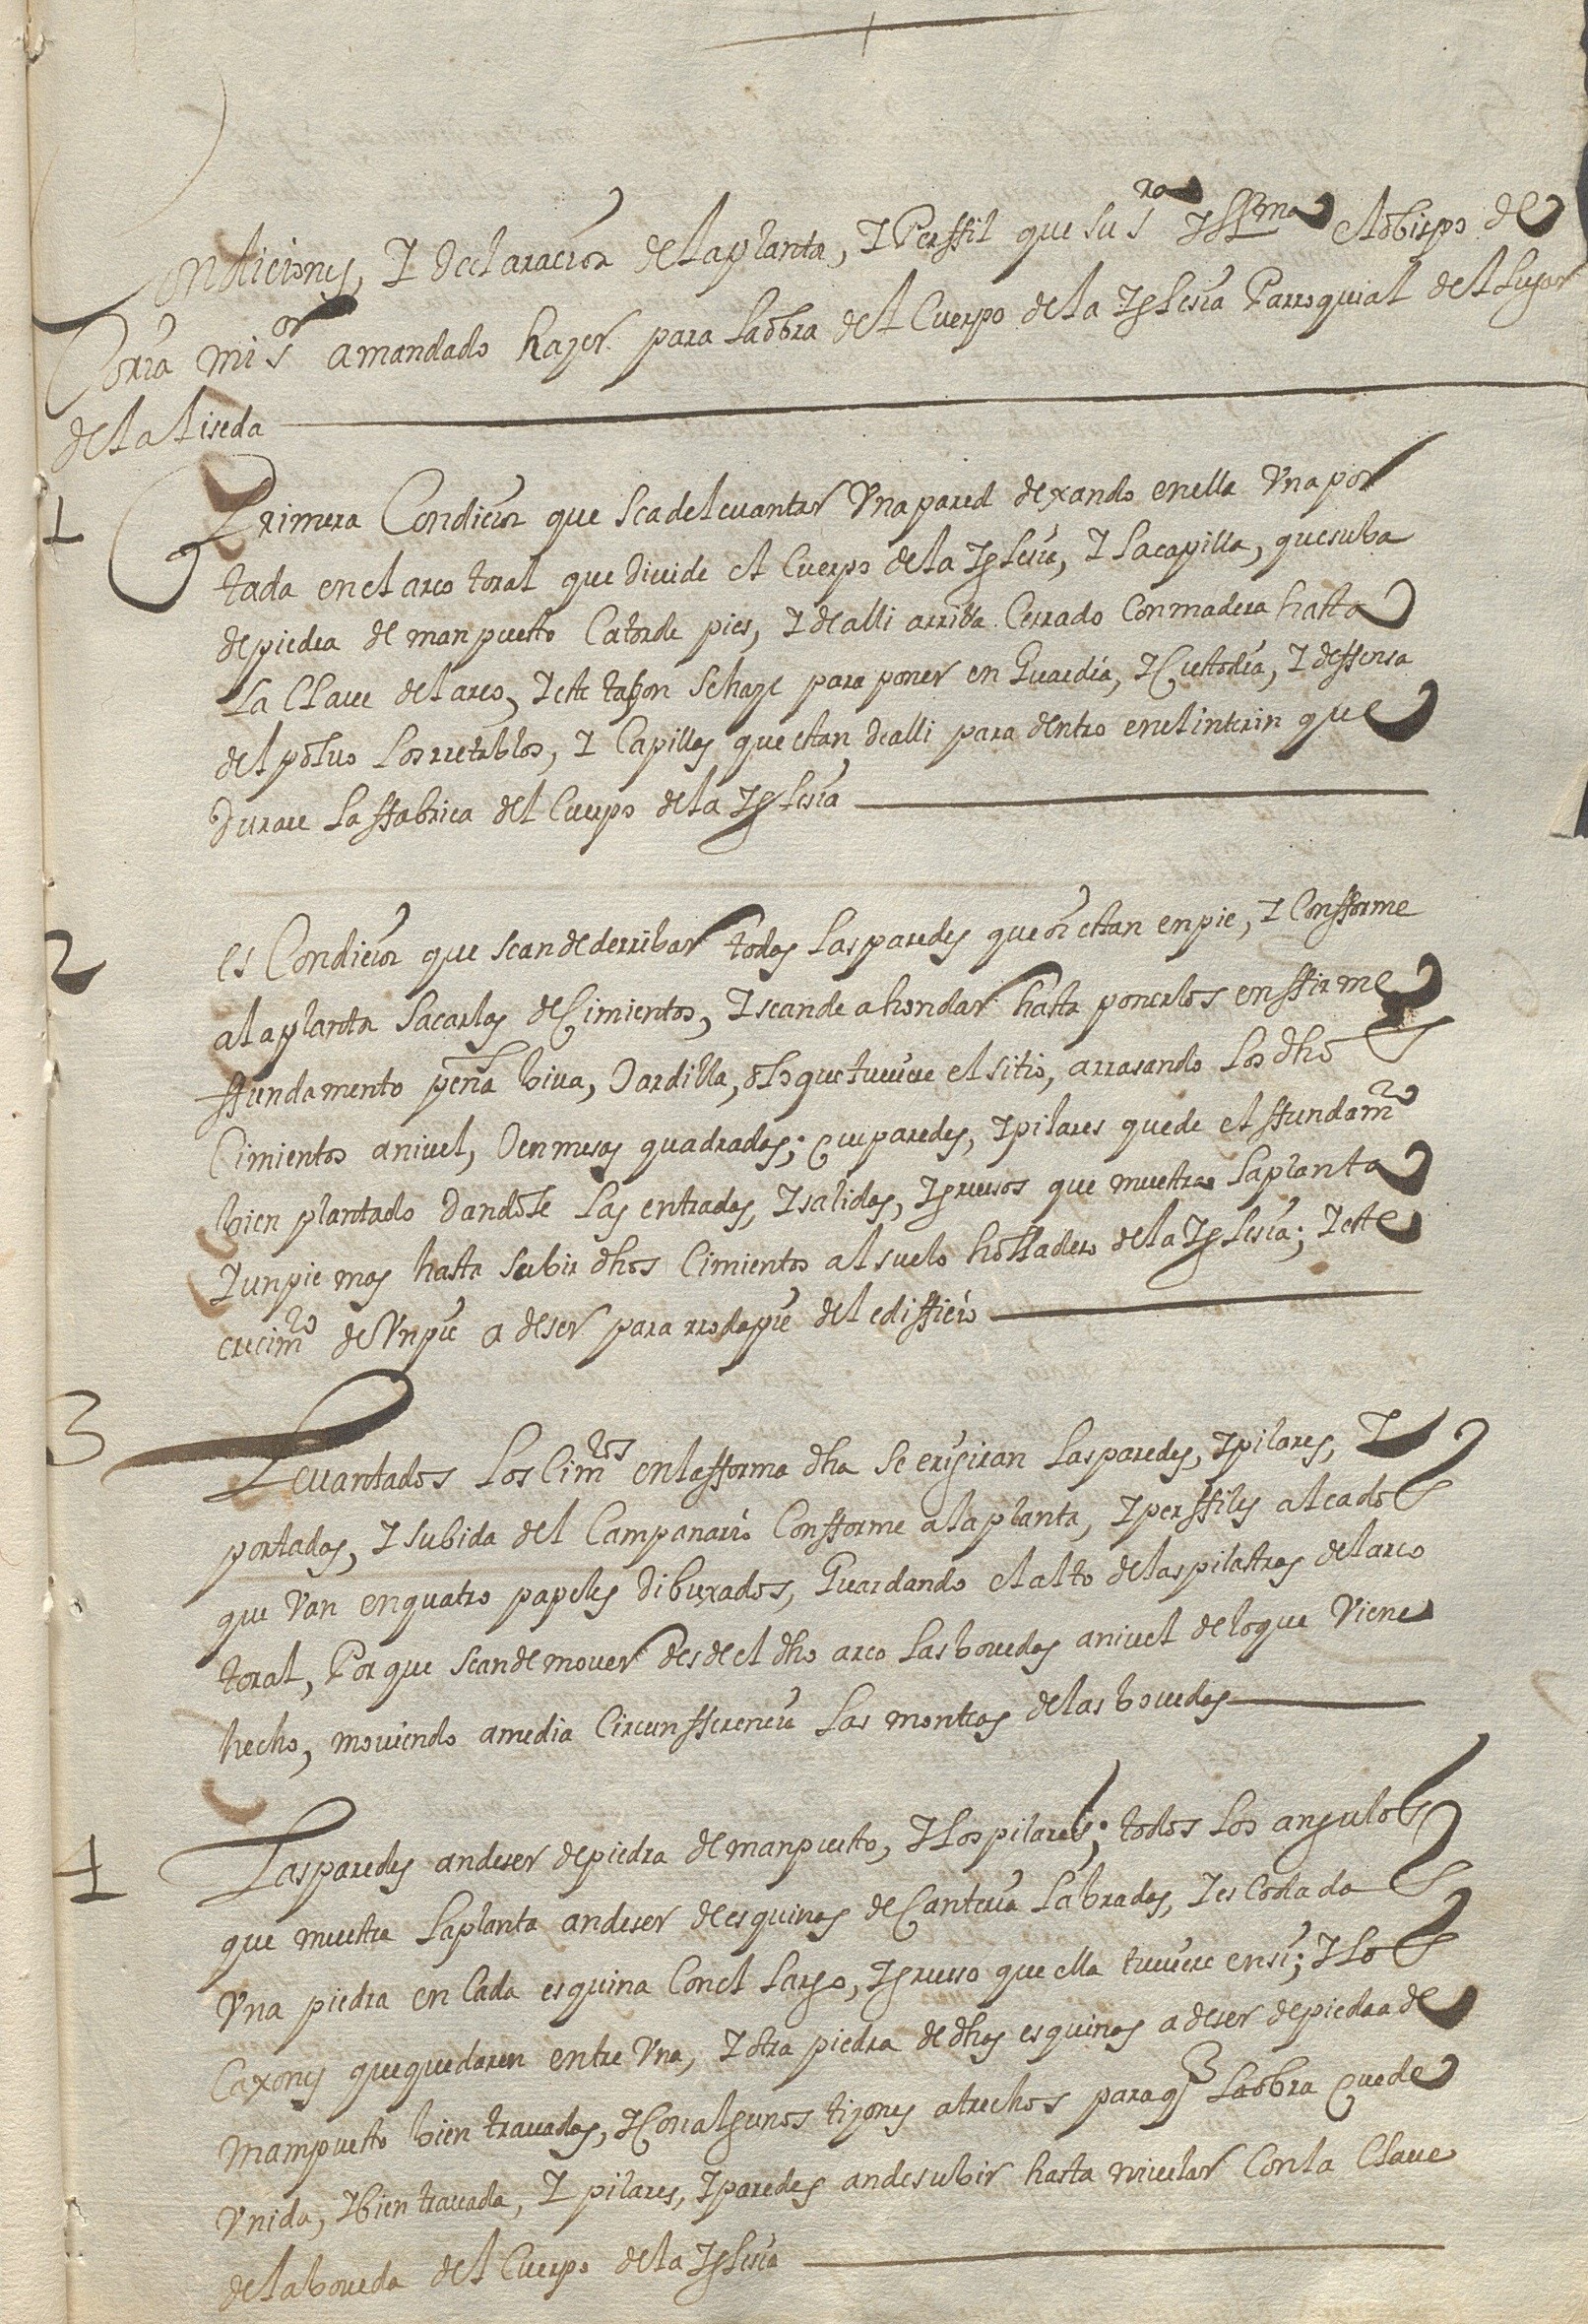 Condiciones, I declaracion de la planta, I Perffil que su sra Illma el obispo de
Coria mi sor a mandado hazer para la obra del Cuerpo de la Iglesia Parroquial del lugar
de la liseda
1 Primera Condicion que sea de leuantar Vna pared dexando en ella Vna por
tada en el arco toral que diuide el Cuerpo de la Iglesia, I la capilla, que suba
de piedra de manpuesto Catorce pies, I de alli arriba Cerrado con madera hasta
la Claue del arco, I este tajon se haze para poner en Guardia, I Custodia, I deffensa
del poluo los rretablos, I Capillas que estan de alli para dentro en el interin que
durare la ffabrica del Cuerpo de la Iglesia
2 es Condicion que se an de derribar todas las paredes que oi estan en pie, I Confforme
a la planta sacarlas de Cimientos, I se an de ahondar hasta ponerlos en ffirme
ffundamento peña biua, O ardilla, o lo que tuuiere el sitio, arrasando los dhos
Cimientos a niuel, O en mesas quadradas; que paredes, I pilares quede el ffundamto
bien plantado dandole las entradas, I salidas, I gruesos que muestra la planta
I un pie mas hasta subir dhos Cimientos al suelo holladero de la Iglesia; I este
crecimto de Vn pie a de ser para rrodapie del ediffiçio
3 Leuantados los Cimtos en la fforma dha se erigiran las paredes, I pilares, I
portadas, I subida del Campanario Confforme a la planta, I perffiles alcados
que Van en quatro papeles dibuxados, Guardando el alto de las pilastras del arco
toral, Por que se an de mouer desde el dho arco las bouedas a niuel de lo que Viene
hecho, mouiendo a media Circunfferencia las monteas de las bouedas
4 Las paredes an de ser de piedra de manpuesto, I los pilares; todos los angulos
que muestra la planta an de ser de esquinas de Canteria labradas, I escodada
Vna piedra en Cada esquina Con el largo, I grueso que ella tuuiere en si; I los
Caxones que quedaren entre Vna, I otra piedra de dhas esquinas a de ser de piedra de
Mampuesto bien trauadas, I Con algunos tizones a trechos para q la obra quede
Vnida, I bien trauada, I pilares, I paredes an de subir hasta niuelar Con la Claue
de la boueda del Cuerpo de la Iglesia